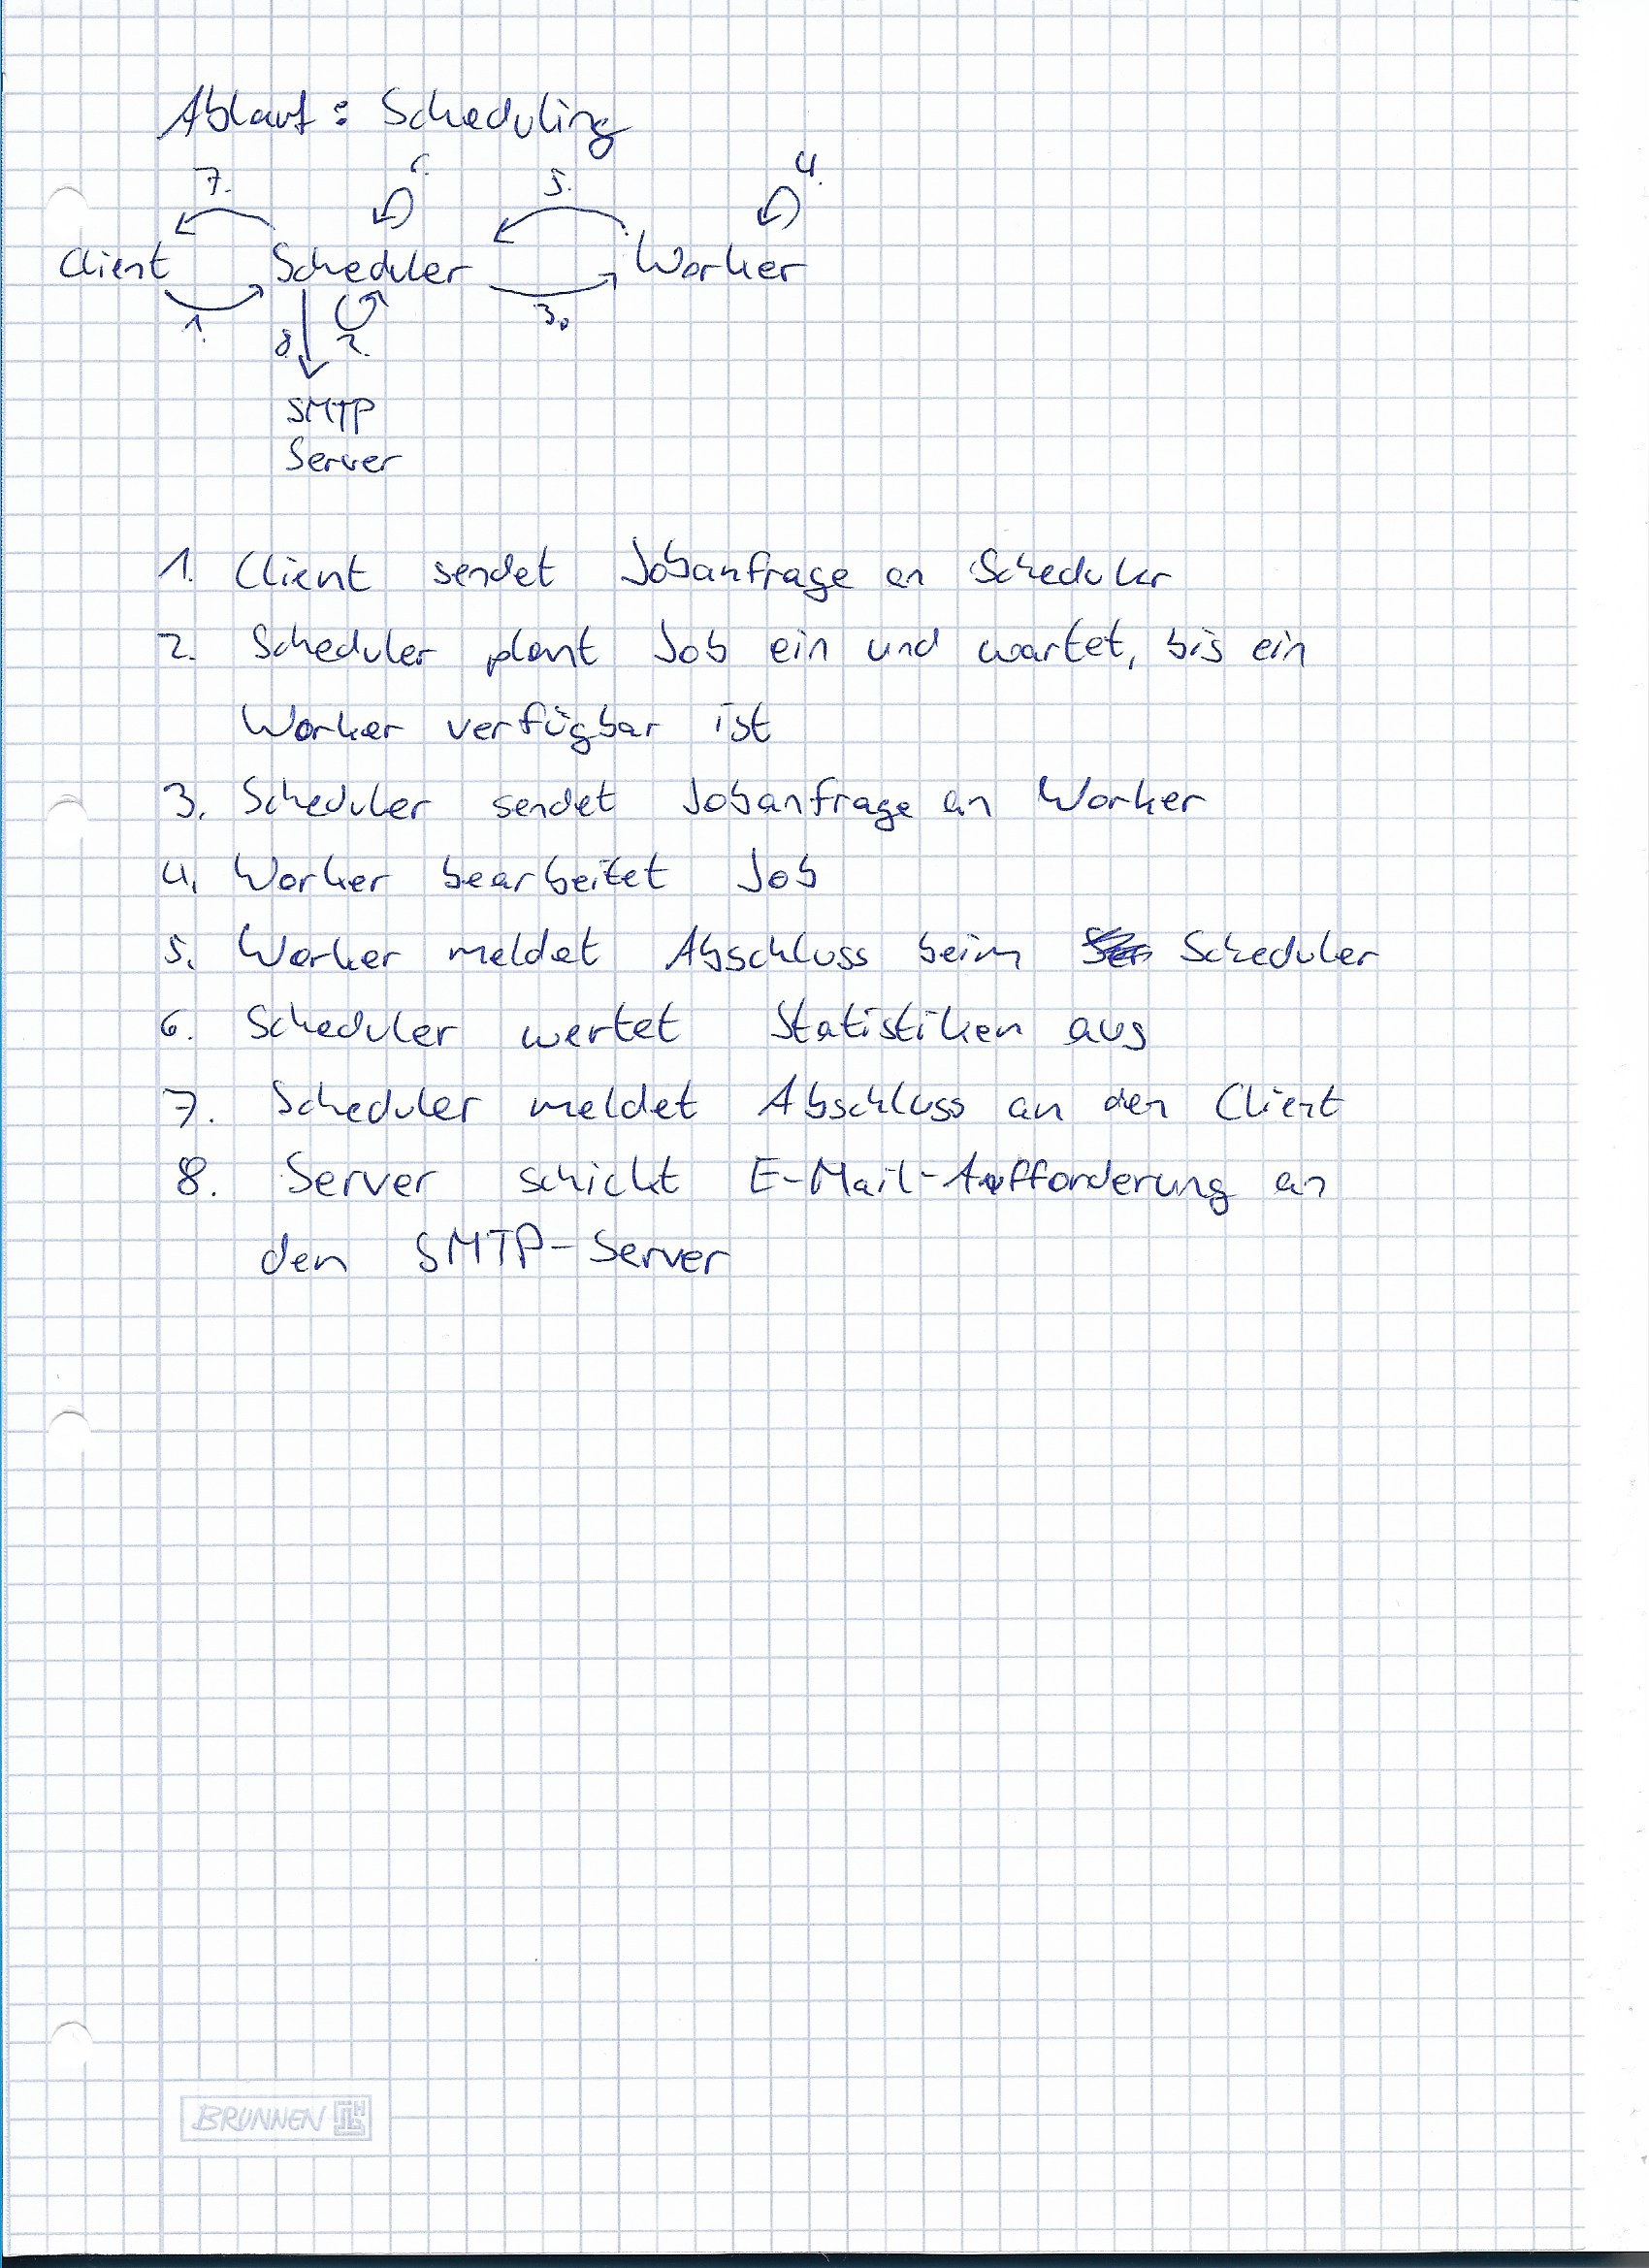 Ablauf: Scheduling
7. 6. 5. 4.
Client Scheduler Worker
1. 8. 2. 3.
SMTP
Server
1. Client sendet Jobanfrage an Scheduler
2. Scheduler plant Job ein und wartet, bis ein
Worker verfügbar ist
3. Scheduler sendet Jobanfrage an Worker
4. Worker bearbeitet Job
5. Worker meldet Abschluss beim Scheduler
6. Scheduler wertet Statistiken aus
7. Scheduler meldet Abschluss an den Client
8. Server schickt E-Mail-Aufforderung an
den SMTP-Server
BRUNNEN